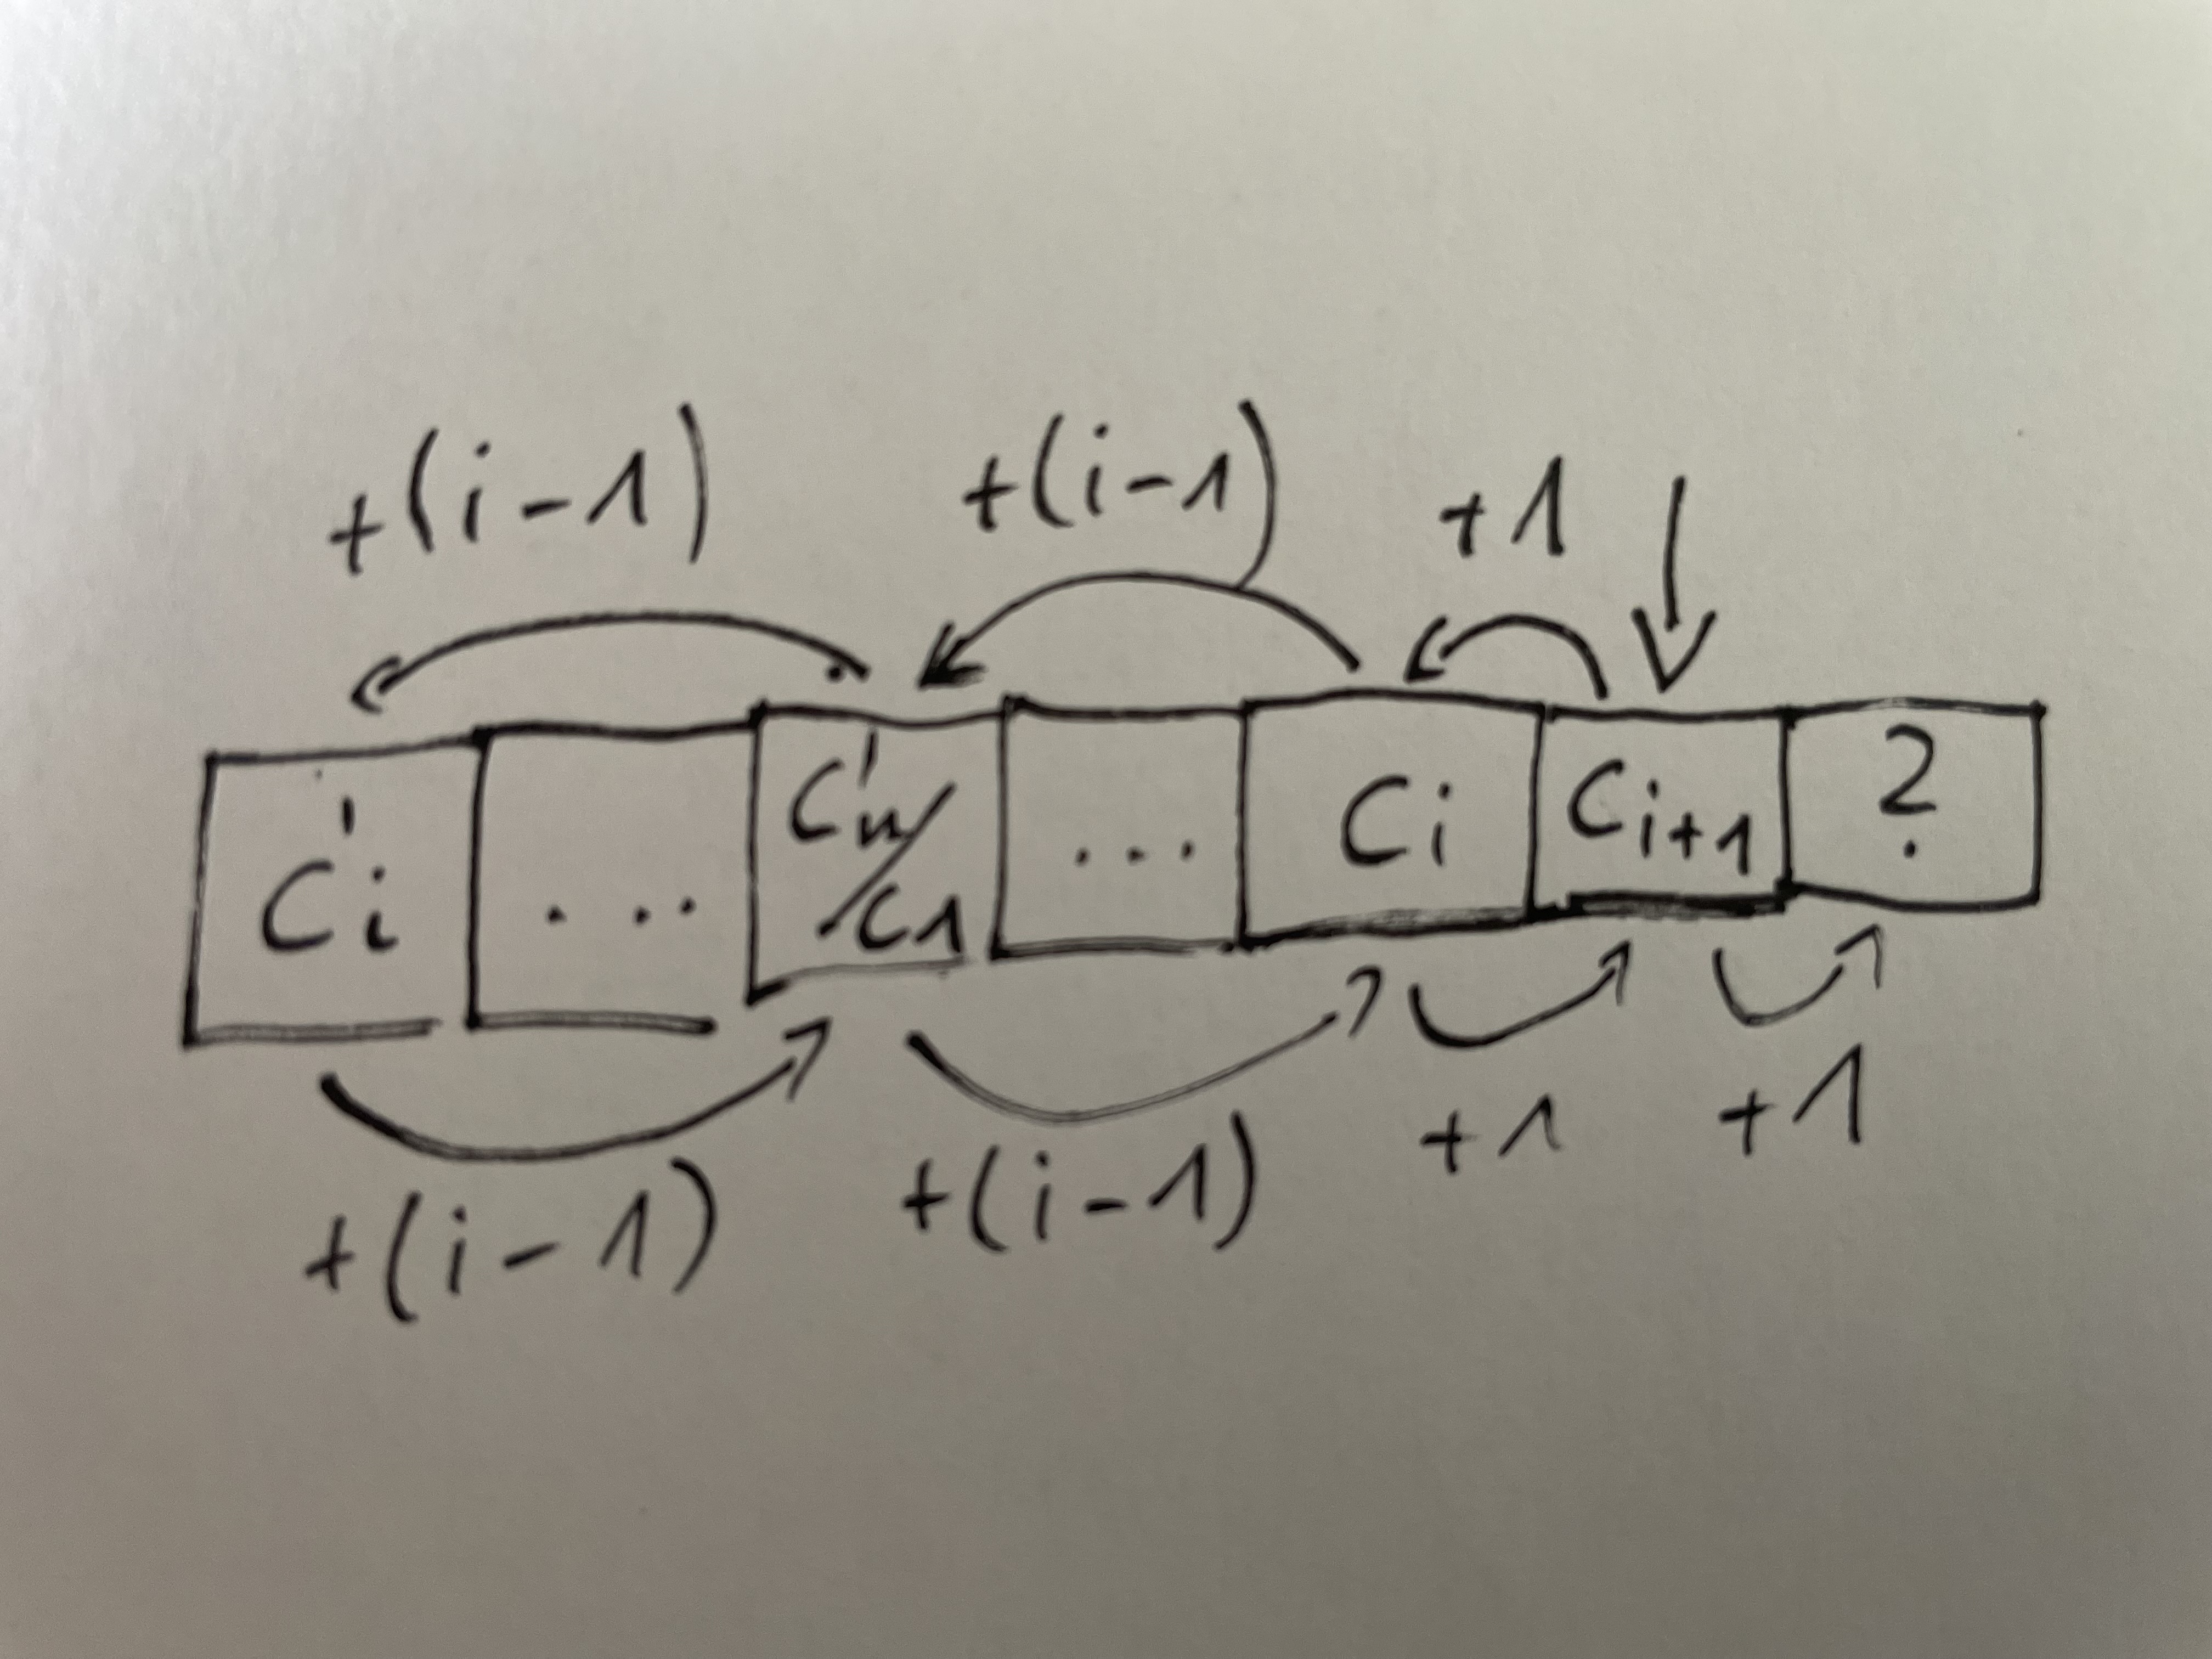 +(i-1) +(i-1) +1
C'i ... C'n/C1 ... Ci Ci+1 ?
+(i-1) +(i-1) +1 +1